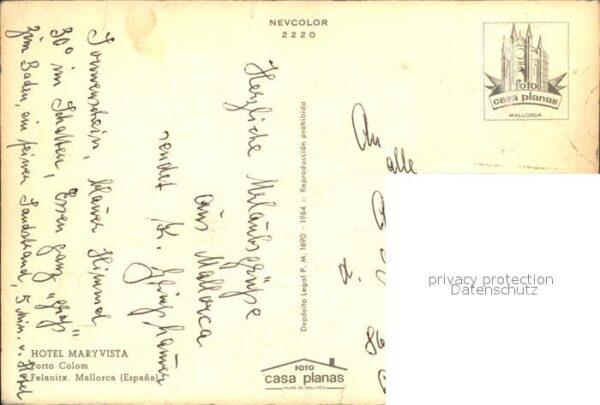 NEVCOLOR
2220
foto
casa planas
MALLORCA
Herzliche Urlaubsgrüße
aus Mallorca
sendet K.
Sonnenschein, blauer Himmel
30° im Schatten, Essen ganz "groß"
zum Baden, ein feiner Sandstrand, 5 Min. v. Hotel
Depósito Legal P. M. 1690 - 1964 :: Reproducción prohibida
An
alle
86
privacy protection
Datenschutz
HOTEL MARYVISTA
Porto Colom
Felanitx. Mallorca (España)
FOTO
casa planas
PALMA DE MALLORCA